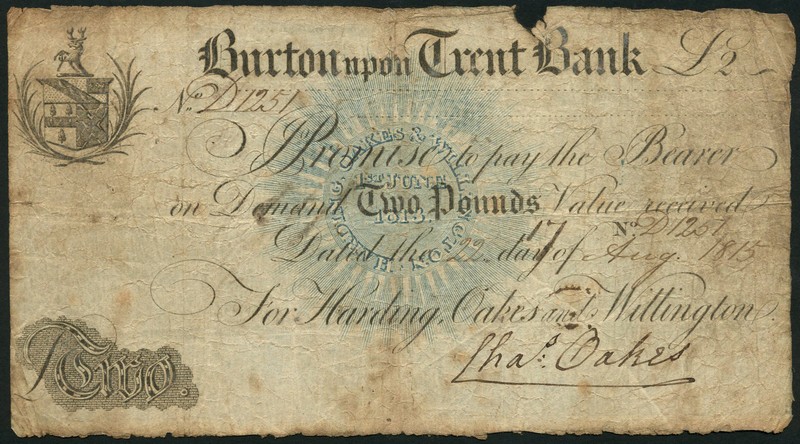 Burton upon Trent Bank £2
No. D1251
I Promise to pay the Bearer
on Demand Two Pounds Value received
17 No. D1251
Dated the 22 day of Aug. 1815
For Harding, Oakes and Wittington.
Chas. Oakes
Two.
1ST JUNE
1813.